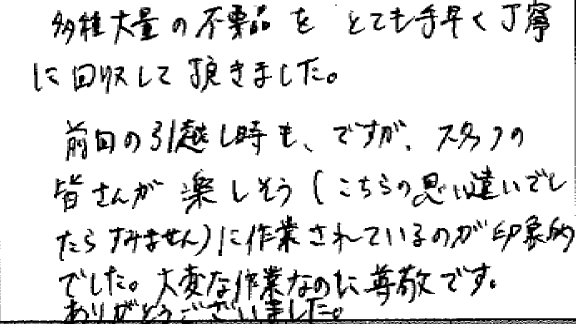 多種大量の不要品を とても手早く丁寧
に回収して頂きました。
前回の引越し時も、ですが、スタッフの
皆さんが 楽しそう(こちらの思い違いでし
たら すみません)に作業されているのが印象的
でした。大変な作業なのに尊敬です。
ありがとうございました。